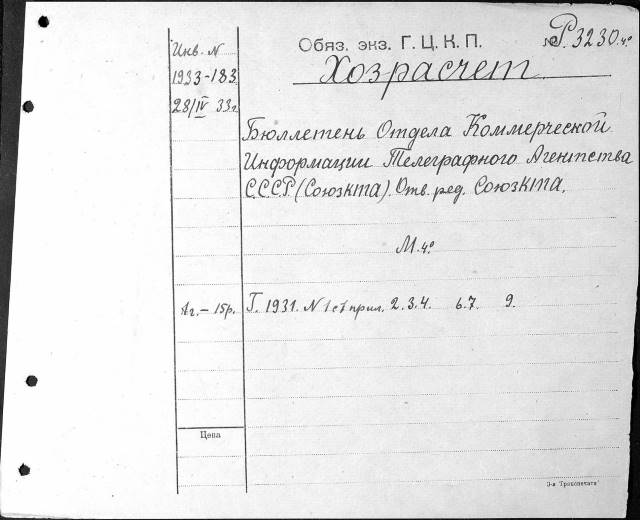 Инв. N
1933-183
28/IV 33г.
Обяз. экз. Г. Ц. К. П.
№ Р 3230 4°
Хозрасчет
Бюллетень Отдела Коммерческой
Информации Телеграфного Агентства
С.С.С.Р. (Союзкта). Отв. ред. Союзкта.
М. 4°
Аг. – 15р.
Г. 1931. N 1 с прил. 2. 3. 4. 6. 7. 9.
Цена